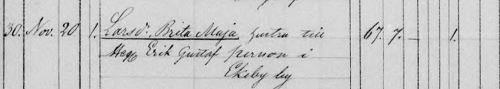 30. Nov. 20 1. Larsdr. Brita Maja, hustru till 67. 7. — 1.
Erik Gustaf person i
Ekeby by